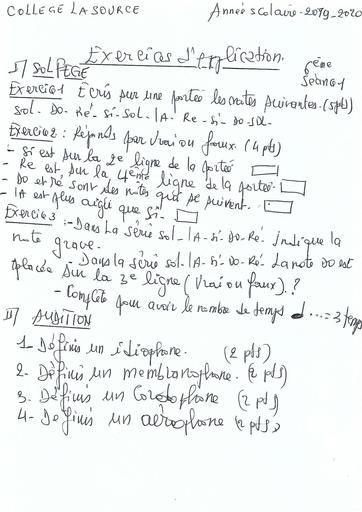 COLLEGE LA SOURCE Année scolaire-2019_2020
Exercices d'application.
6ème
Séance1
I/ SOLFEGE
Exercice1 Ecris sur une portée les notes suivantes.(5pts)
sol. Do. Ré. Si. Sol. lA. Re - Si- Do-Sol.
Exercice2: Réponds par vrai ou faux. (4 pts)
- Si est sur la 2e ligne de la portée
- Re est sur la 4ème ligne de la portée.
- Do et ré sont des notes qui se suivent.
- lA est plus aigüe que Si.
Exercice3: - Dans la série sol_lA-Si-Do-Ré. Indique la
note grave.
- Dans la série sol-lA-Si-Do-Ré la note Do est
placée sur la 3e ligne (Vrai ou faux).?
- Complète pour avoir le nombre de temps ... = 3 temps
II) AUDITION
1- Définis un idiophone. (2 pts)
2- Définis un membranophone. (2 pts)
3. Définis un Cordophone (2 pts)
4- Définis un aérophone (2 pts)